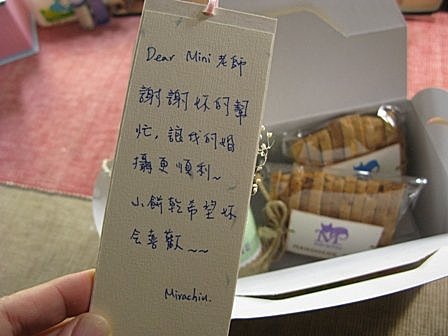 Dear Mini老師
謝謝妳的幫
忙，讓我的婚
攝更順利~
小餅乾希望妳
會喜歡~~
Mirachiu.